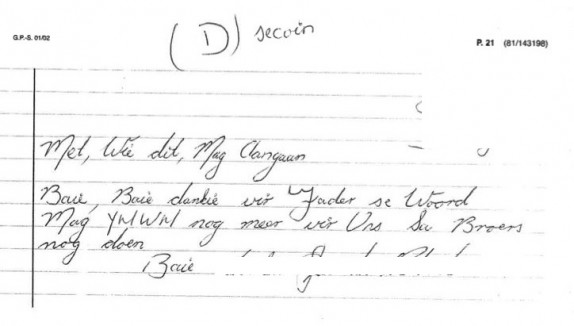 G.P.-S. 01/02
(D) secoin
P. 21 (81/143198)
Met, Wie dit, Mag Aangaan
Baie, Baie dankie vir Vader se Woord
Mag YHWH nog meer vir Uns Sa Broers
nog doen
Baie